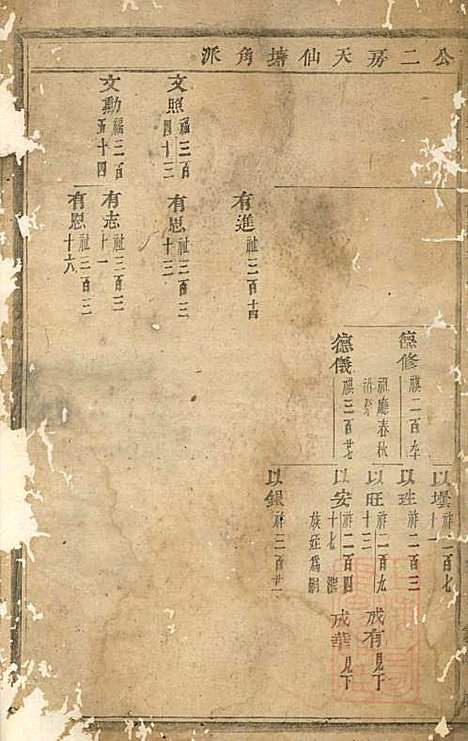 公二房天仙塘角派
德修 祺二百九十
祖廳春秋
德儀 祺三百廿七
以壜 祚二百七十一
以珄 祚二百三
以旺 祚二百九十三
成有 見下
以安 祚二百四十七
族姪爲嗣
成華 見下
以銀 祚三百廿一
有進 祉三百十四
文照 福三百四十三
有恩 祉三百三十三
文勳 福三百五十四
有志 祉三百三十一
有恩 祉三百三十六